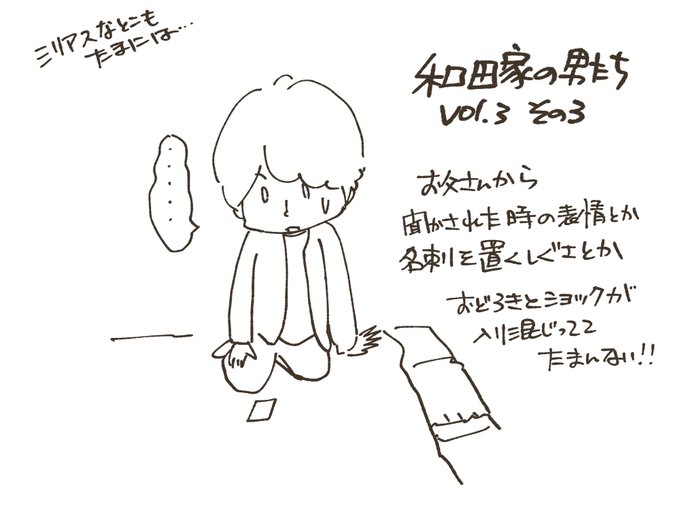 ミリアスなとこも
たまには…
和田家の男たち
vol.3 その3
……
お父さんから
聞かされた時の表情とか
名刺を置くしぐさとか
おどろきとショックが
入り混じってて
たまんない!!